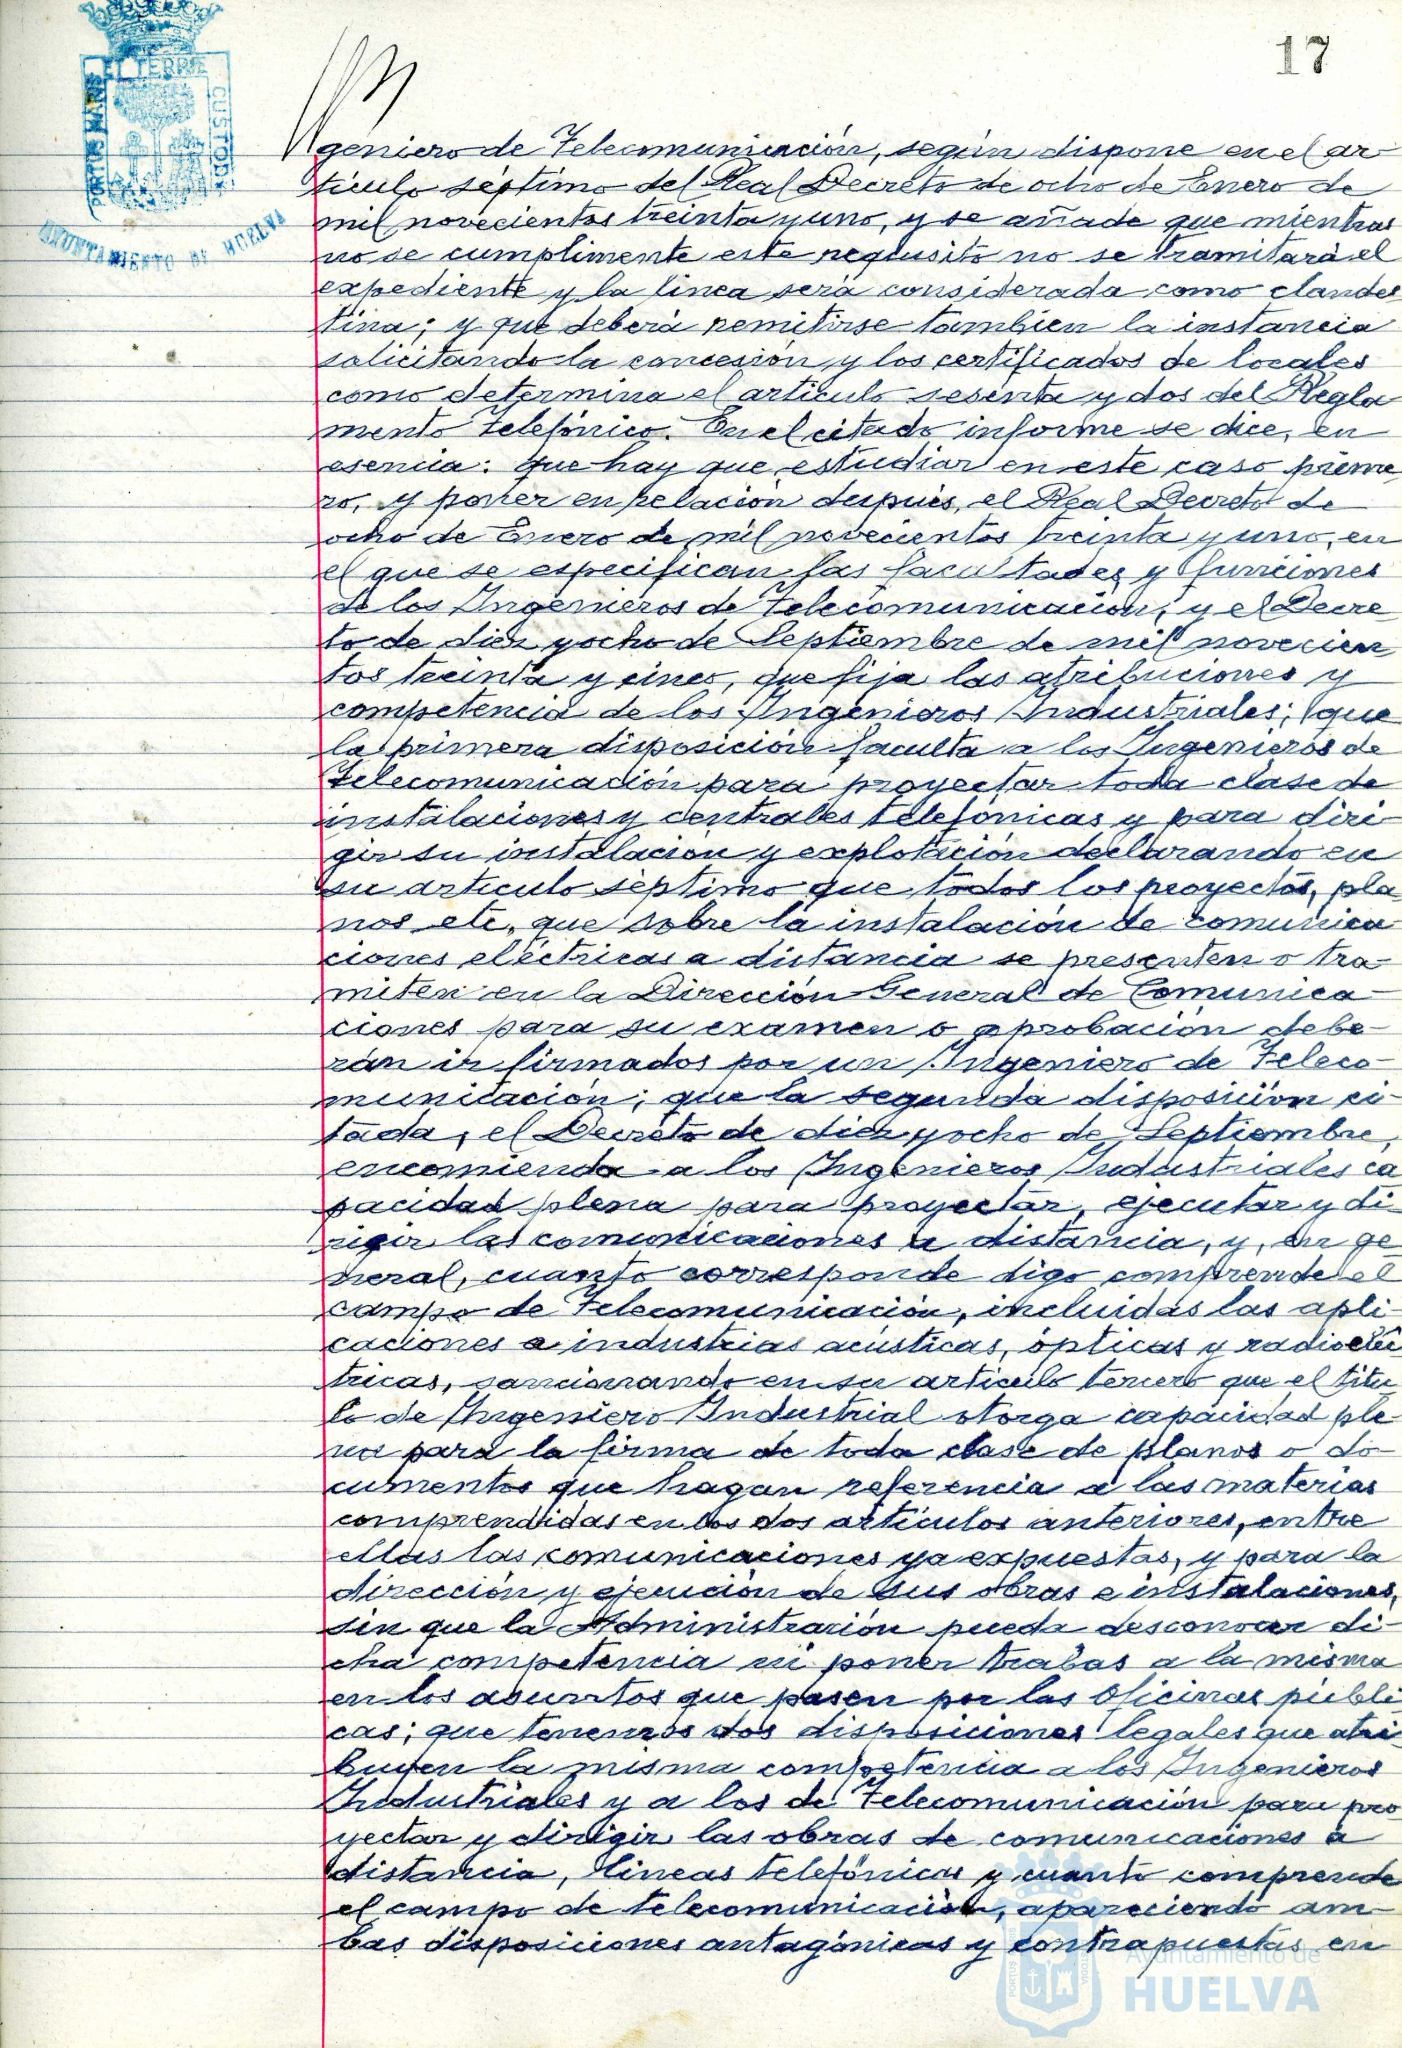 17
PORTUS MARIS
ET TERRE
CUSTODIA
AYUNTAMIENTO DE HUELVA
geniero de Telecomunicación, según dispone en el ar-
tículo séptimo del Real Decreto de ocho de Enero de
mil novecientos treinta y uno, y se añade que mientras
no se cumplimente este requisito no se tramitará el
expediente y la linea será considerada como clandes
tina; y que deberá remitirse tambien la instancia
solicitando la concesión y los certificados de locales
como determina el artículo sesenta y dos del Regla
mento Telefónico. En el citado informe se dice, en
esencia: que hay que estudiar en este caso prime
ro, y poner en relación después, el Real Decreto de
ocho de Enero de mil novecientos treinta y uno, en
el que se especifican las facultades y funciones
de los Ingenieros de Telecomunicación, y el Decre
to de diez y ocho de Septiembre de mil novecien
tos treinta y cinco, que fija las atribuciones y
competencia de los Ingenieros Industriales; que
la primera disposición faculta a los Ingenieros de
Telecomunicación para proyectar toda clase de
instalaciones y centrales telefónicas y para diri-
gir su instalación y explotación declarando en
su artículo séptimo que todos los proyectos, pla
nos etc, que sobre la instalación de comunica
ciones eléctricas a distancia se presenten o tra-
miten en la Dirección General de Comunica-
ciones para su examen o aprobación debe-
rán ir firmados por un Ingeniero de Teleco-
municación; que la segunda disposición ci-
tada, el Decreto de diez y ocho de Septiembre,
encomienda a los Ingenieros Industriales ca
pacidad plena para proyectar, ejecutar y di-
rigir las comunicaciones a distancia, y, en ge-
neral, cuanto corresponde digo comprende el
campo de Telecomunicación, incluidas las apli-
caciones a industrias acústicas, ópticas y radioeléc
tricas, sancionando en su artículo tercero que el títu
lo de Ingeniero Industrial otorga capacidad ple-
na para la firma de toda clase de planos o do-
cumentos que hagan referencia a las materias
comprendidas en los dos artículos anteriores, entre
ellas las comunicaciones ya expuestas, y para la
dirección y ejecución de sus obras e instalaciones,
sin que la Administración pueda desconocer di-
cha competencia ni poner trabas a la misma
en los asuntos que pasen por las Oficinas públi
cas; que tenemos dos disposiciones legales que atri
buyen la misma competencia a los Ingenieros
Industriales y a los de Telecomunicación para pro
yectar y dirigir las obras de comunicaciones a
distancia, líneas telefónicas y cuanto comprende
el campo de telecomunicación, apareciendo am-
bas disposiciones antagónicas y contrapuestas en
Ayuntamiento de
HUELVA